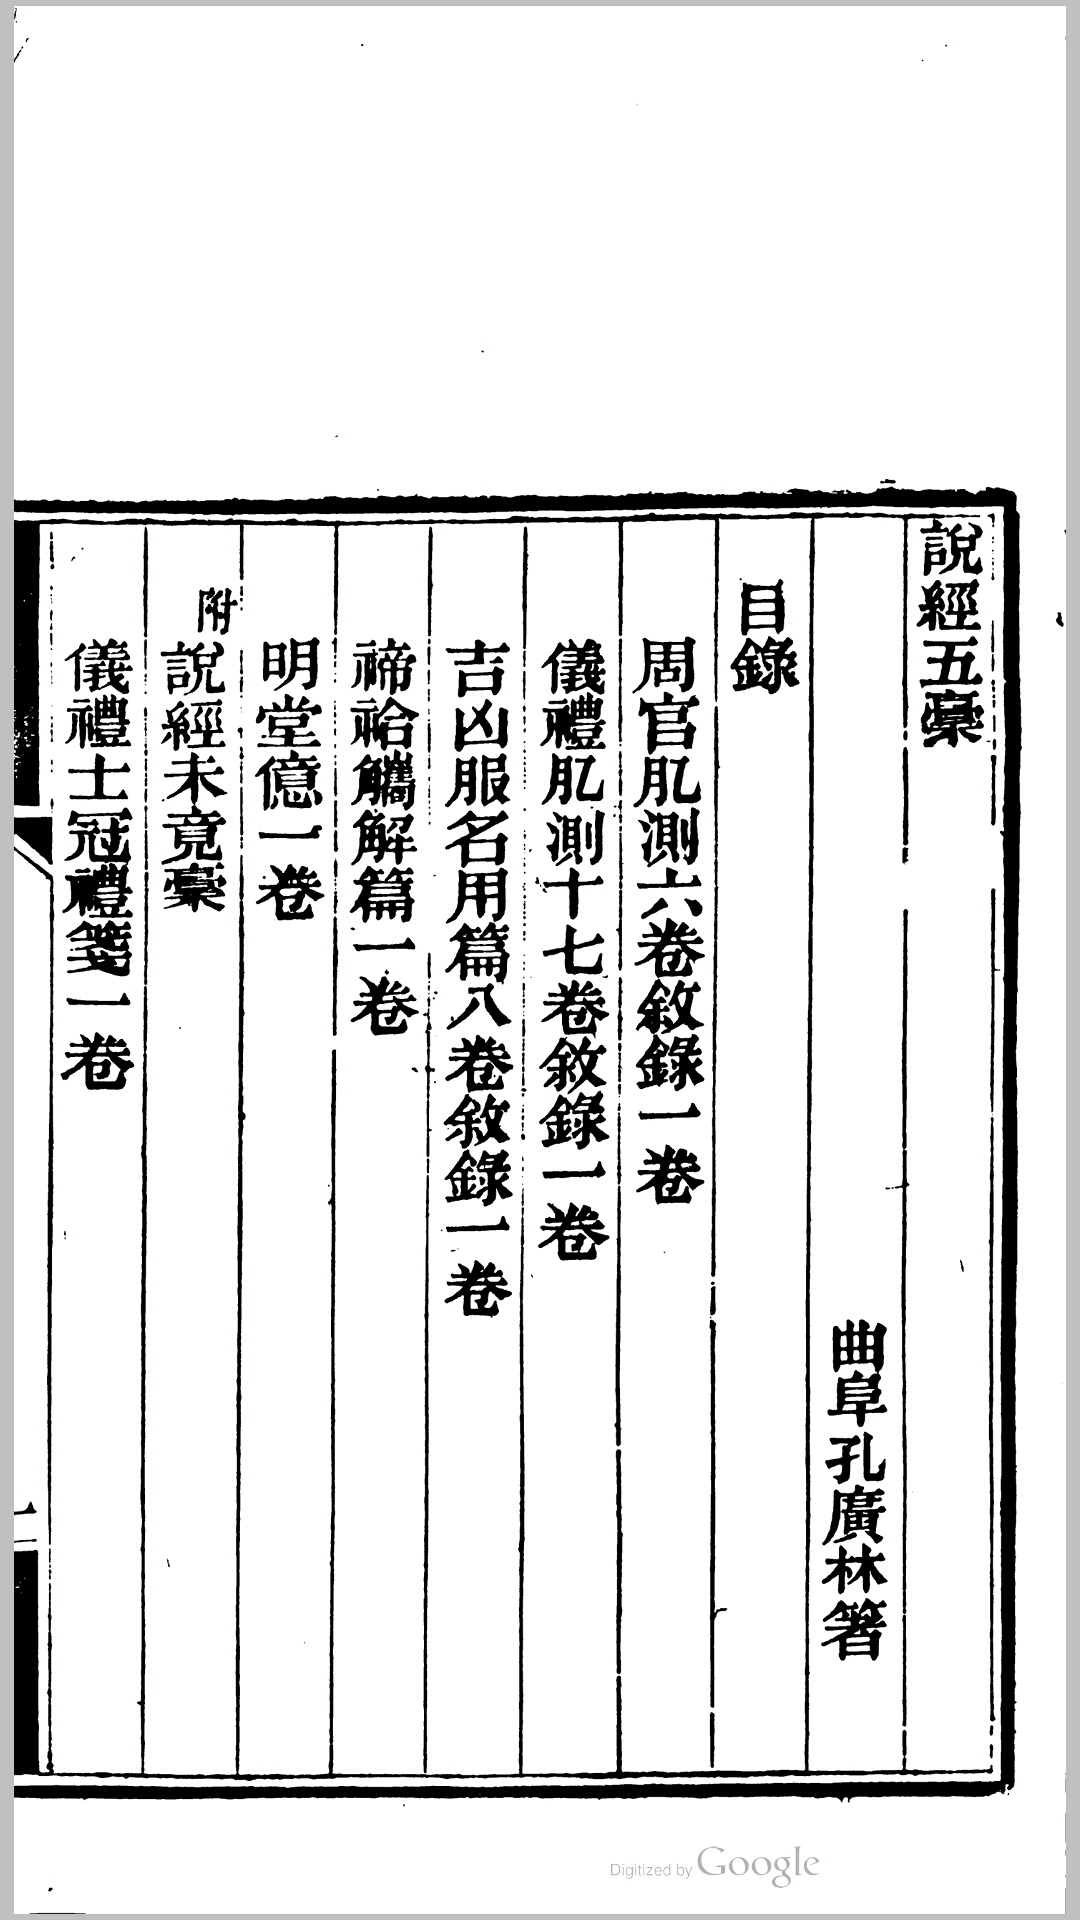 說經五稾
曲阜孔廣林箸
目錄
周官肊測六卷敘錄一卷
儀禮肊測十七卷敘錄一卷
吉凶服名用篇八卷敘錄一卷
禘祫觿解篇一卷
明堂億一卷
附
說經未竟稾
儀禮士冠禮箋一卷
一
Digitized by Google